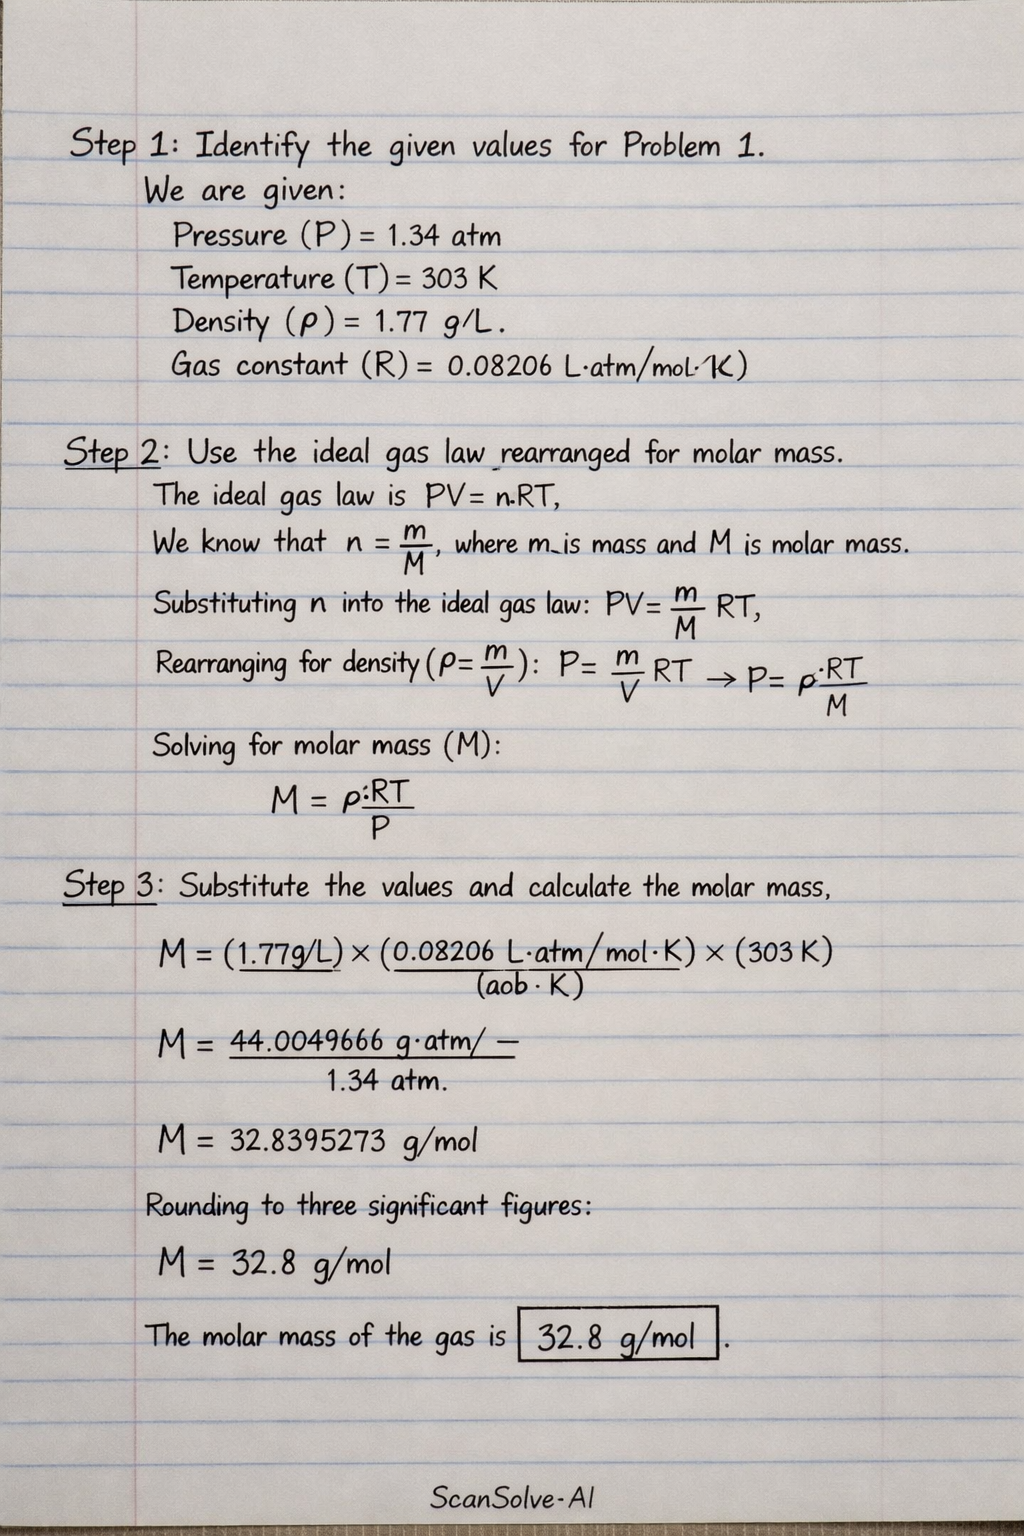 Step 1: Identify the given values for Problem 1.
We are given:
Pressure (P) = 1.34 atm
Temperature (T) = 303 K
Density (ρ) = 1.77 g/L.
Gas constant (R) = 0.08206 L·atm/mol·K)
Step 2: Use the ideal gas law rearranged for molar mass.
The ideal gas law is PV = n.RT,
We know that n = m/M, where m is mass and M is molar mass.
Substituting n into the ideal gas law: PV = m/M RT,
Rearranging for density (ρ = m/V): P = m/V RT → P = ρ·RT/M
Solving for molar mass (M):
M = ρ:RT/P
Step 3: Substitute the values and calculate the molar mass,
M = (1.77g/L) × (0.08206 L·atm/mol·K) × (303 K)
(aob · K)
M = 44.0049666 g·atm/ —
1.34 atm.
M = 32.8395273 g/mol
Rounding to three significant figures:
M = 32.8 g/mol
The molar mass of the gas is 32.8 g/mol.
ScanSolve-AI